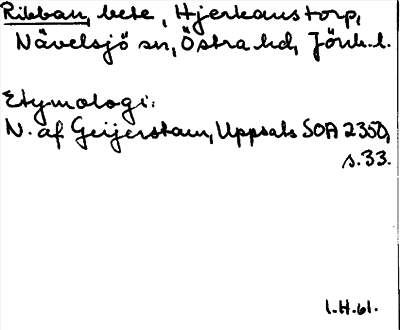 Ribban, bete, Hjerkanstorp,
Nävelsjö sn, Östra hd, Jönk. l.
Etymologi:
N. af Geijerstam, Uppsats SOA 2350,
s. 33.
I.H.61.